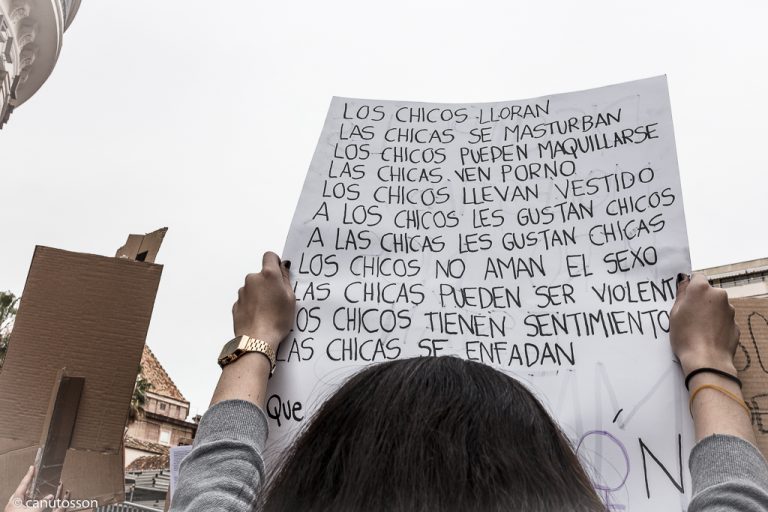 LOS CHICOS LLORAN
LAS CHICAS SE MASTURBAN
LOS CHICOS PUEDEN MAQUILLARSE
LAS CHICAS VEN PORNO
LOS CHICOS LLEVAN VESTIDO
A LOS CHICOS LES GUSTAN CHICOS
A LAS CHICAS LES GUSTAN CHICAS
LOS CHICOS NO AMAN EL SEXO
LAS CHICAS PUEDEN SER VIOLENT
LOS CHICOS TIENEN SENTIMIENTO
LAS CHICAS SE ENFADAN
Que
© canutosson